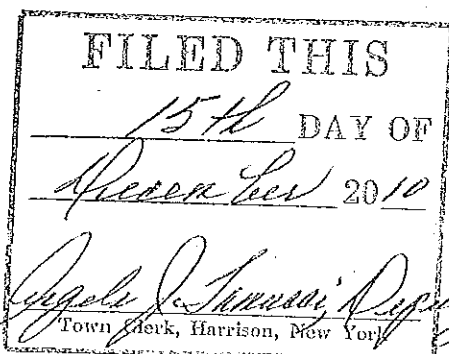 FILED THIS
15th DAY OF
December 2010
J.
Town Clerk, Harrison, New York